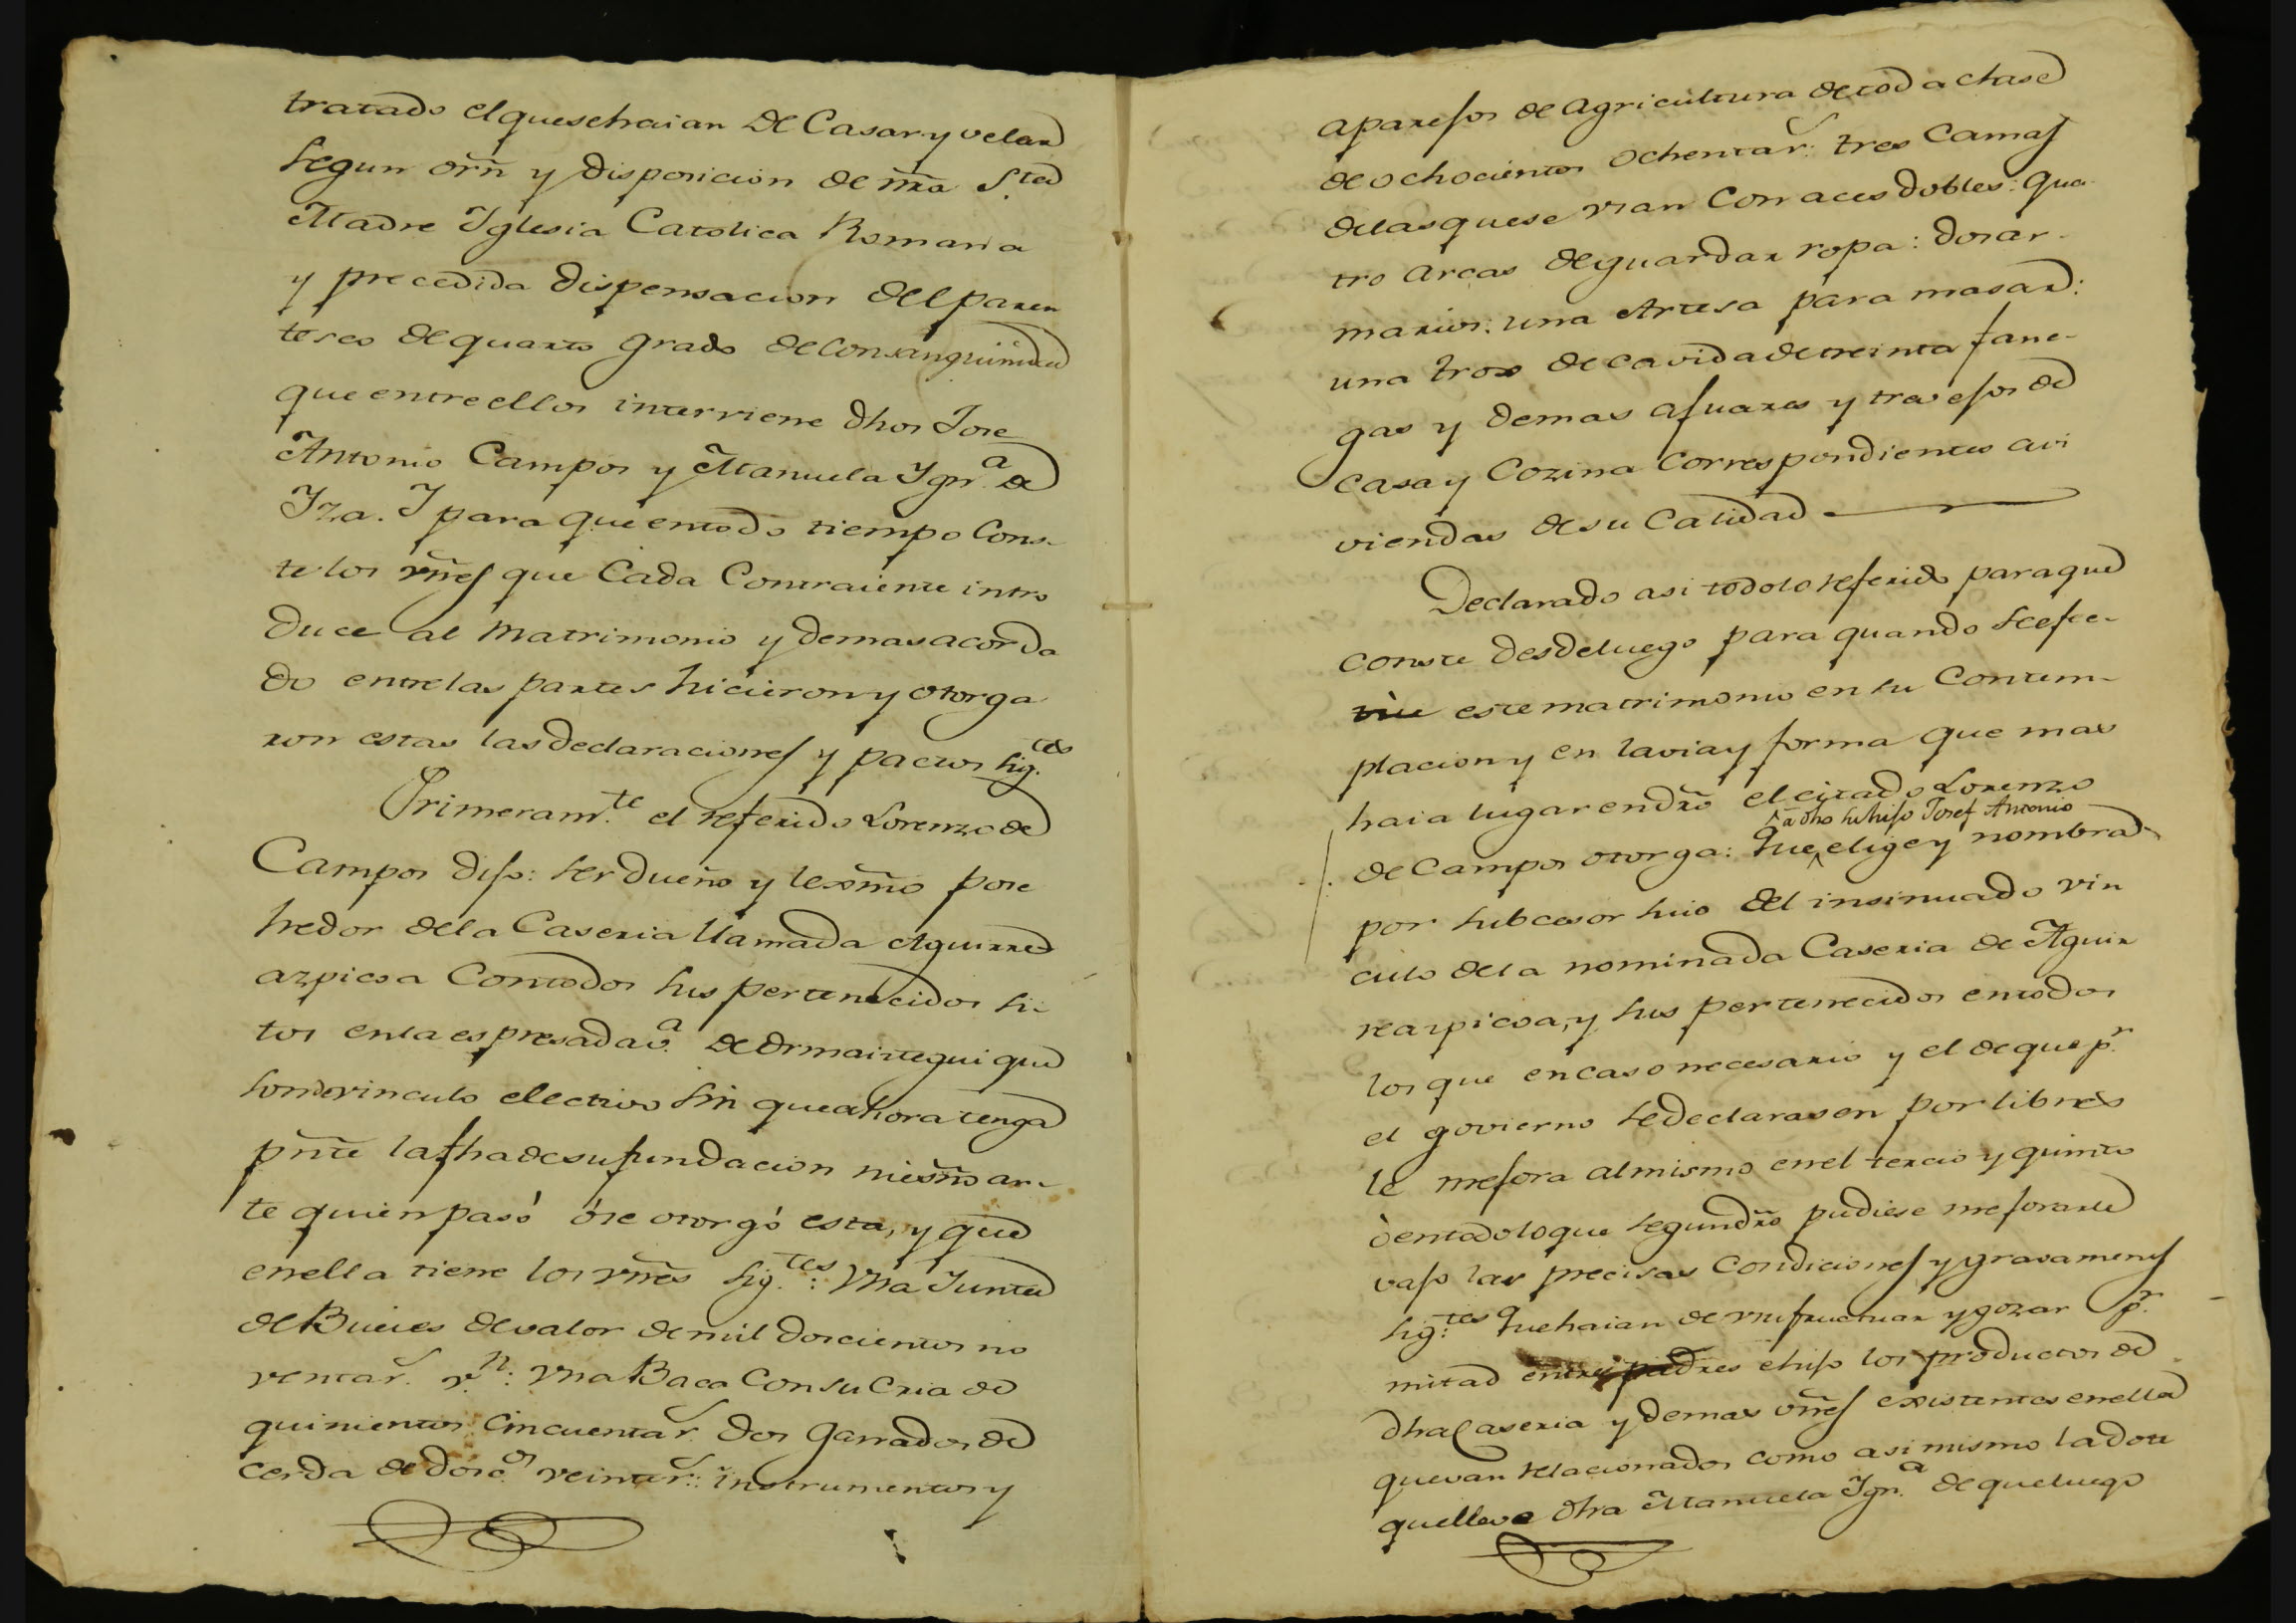 tratado el que se haian de Casar y velar
segun orñ y disposicion de ñra S.ta
Madre Iglesia Catolica Romana
y precedida dispensacion del paren
tesco de quarto grado de consanguinidad
que entre ellos interviene dhos Jose
Antonio Campos y Manuela Ign.a de
Iza. I para que en todo tiempo Cons-
te los vñes que Cada Contraiente intro
duce al Matrimonio y demas acorda
do entre las partes hicieron y otorga
ron estas las declaraciones y pactos sig.tes
Primeram.te el referido Lorenzo de
Campos dijo: ser dueño y lexmo pose
hedor de la Caseria llamada Aguirre
azpicoa Con todos sus pertenecidos si-
tos en la espresada v.a de Ormaiztegui que
son de vinculo electivo sin que ahora tenga
pñte la fha de su fundacion ni esño an-
te quien pasó óse otorgó esta, y que
en ella tiene los vñes sig.tes: Vna Junta
de Bueies de valor de mil doscientos no
venta r.s v.n: Vna Baca Con su Cria de
quinientos cincuenta r.s dos Ganados de
cerda de dosc.os veinte r.s: instrumentos y
aparejos de agricultura de toda clase
de ochocientos ochenta r.s: tres Camas
de las que se vsan Con aces dobles: qua-
tro arcas de guardar ropa: dos ar-
marios: una Artesa para masar:
una trox de cavida de treinta fane-
gas y demas ajuares y trasejos de
Casa y Cozina Correspondientes a vi
viendas de su Calidad
Declarado asi todo lo referido para que
conste desde luego para quando se efec-
túe este matrimonio en su Contem-
placion y en la via y forma que mas
haia lugar en dro el citado Lorenzo
a dho su hijo Josef Antonio
de Campos otorga: Que elige y nombra
por subcesor suio del insinuado vin
culo de la nominada Caseria de Aguir
reazpicoa, y sus pertenecidos en todos
los que en caso necesario y el de que p.r
el govierno se declarasen por libres
le mejora al mismo en el tercio y quinto
ò en todo lo que segun dro pudiese mejorarle
vajo las precisas condiciones y gravamenes
sig.tes Que haian de vsufructuar y gozar p.r
mitad entre padres e hijo los productos de
dha Caseria y demas vñes existentes en ella
que van relacionados como asi mismo la dote
que lleva dha Manuela Ign.a de que luego